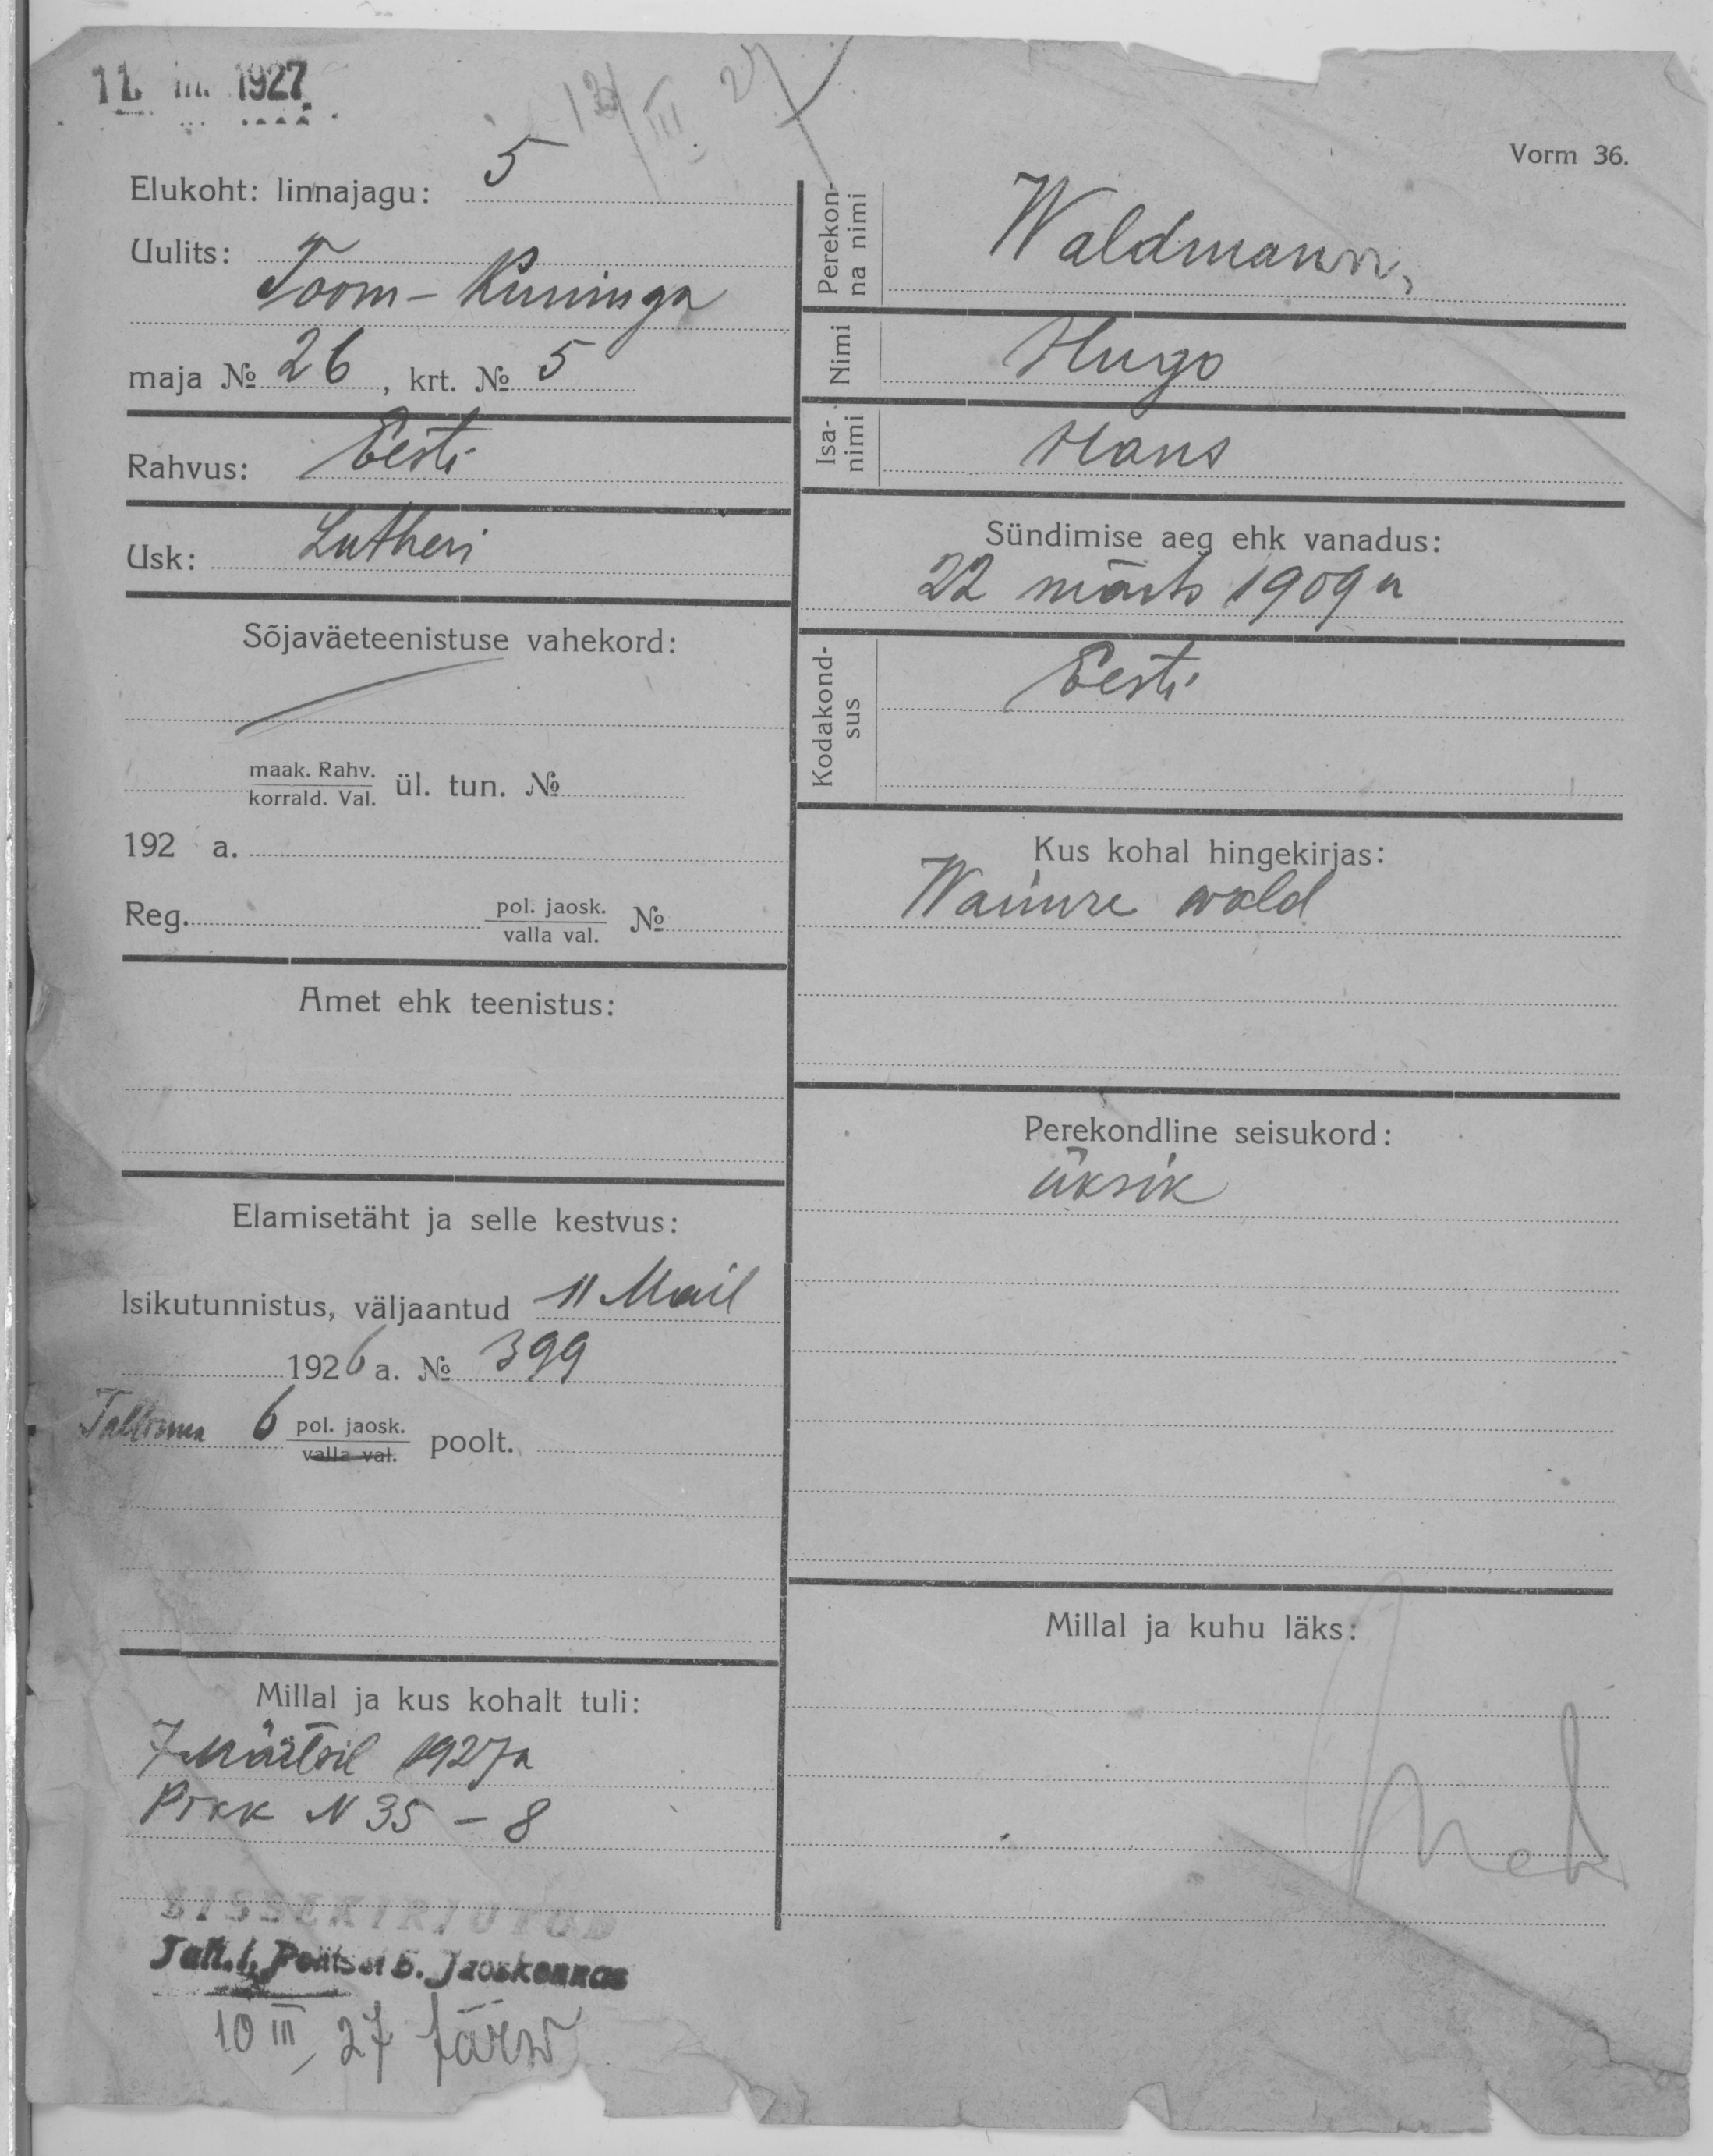 11. III. 1927
13/III 27
Vorm 36.
Elukoht: linnajagu: 5
Uulits:
Toom-Kuninga
maja № 26, krt. № 5
Rahvus: Eesti
Usk: Lutheri
Sõjaväeteenistuse vahekord:
maak. Rahv.
korrald. Val. ül. tun. №
192 a.
Reg. pol. jaosk.
valla val. №
Amet ehk teenistus:
Elamisetäht ja selle kestvus:
Isikutunnistus, väljaantud 11 Mail
1926 a. № 399
Tallinna 6 pol. jaosk.
valla val. poolt.
Millal ja kus kohalt tuli:
7 Märtsil 1927 a
Pikk N 35 - 8
SISSEKIRJUTUD
Tall. l. Politsei 5. Jaoskonnas
10 III 27 Järw
Perekonna nimi Waldmann,
Nimi Hugo
Isa-nimi Hans
Sündimise aeg ehk vanadus:
22 märts 1909 a
Kodakondsus Eesti
Kus kohal hingekirjas:
wald
Perekondline seisukord:
üksik
Millal ja kuhu läks: